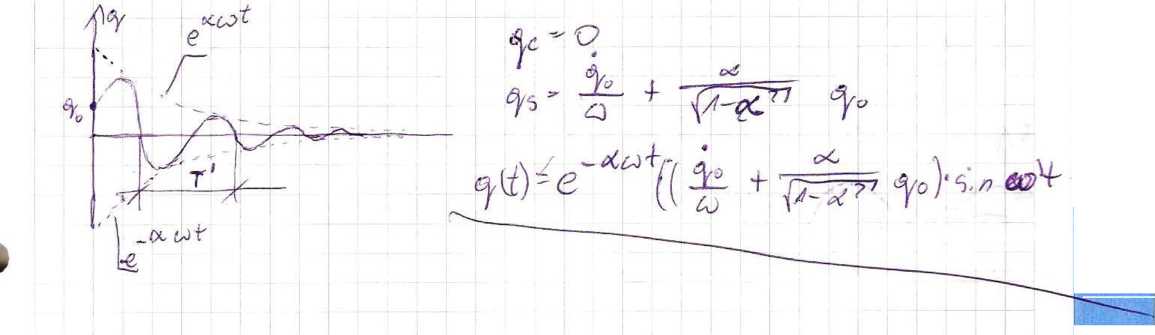 q
e^{αωt}
q₀
T'
-e^{-αωt}
q_c = 0
q_s = q̇₀/ω + α/√(1-α²) q₀
q(t) = e^{-αωt}((q̇₀/ω + α/√(1-α²) q₀)·sin ω't